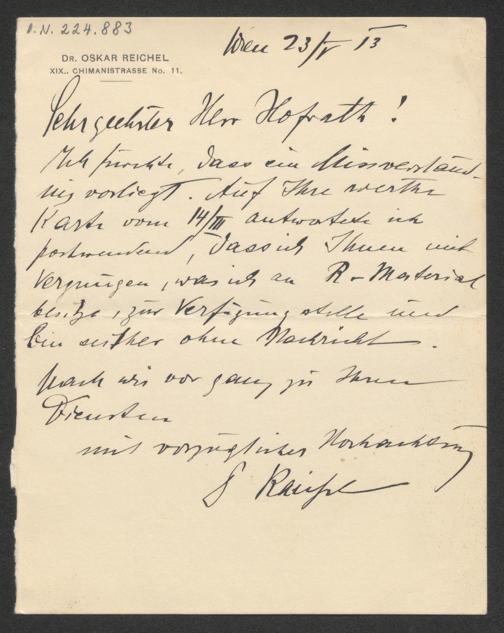 I.N. 224.883
DR. OSKAR REICHEL
XIX., CHIMANISTRASSE No. 11.
Wien 23/V 13
Sehrgeehrter Herr Hofrath!
Ich fürchte, dass ein Missverständ-
nis vorliegt. Auf Ihre werthe
Karte vom 14/III antwortete ich
postwendend, dass ich Ihnen mit
Vergnügen, was ich an R-Material
besitze, zur Verfügung stelle und
bin seither ohne Nachricht.
Nach wie vor ganz zu Ihren
Diensten
mit vorzüglicher Hochachtung
Reichel